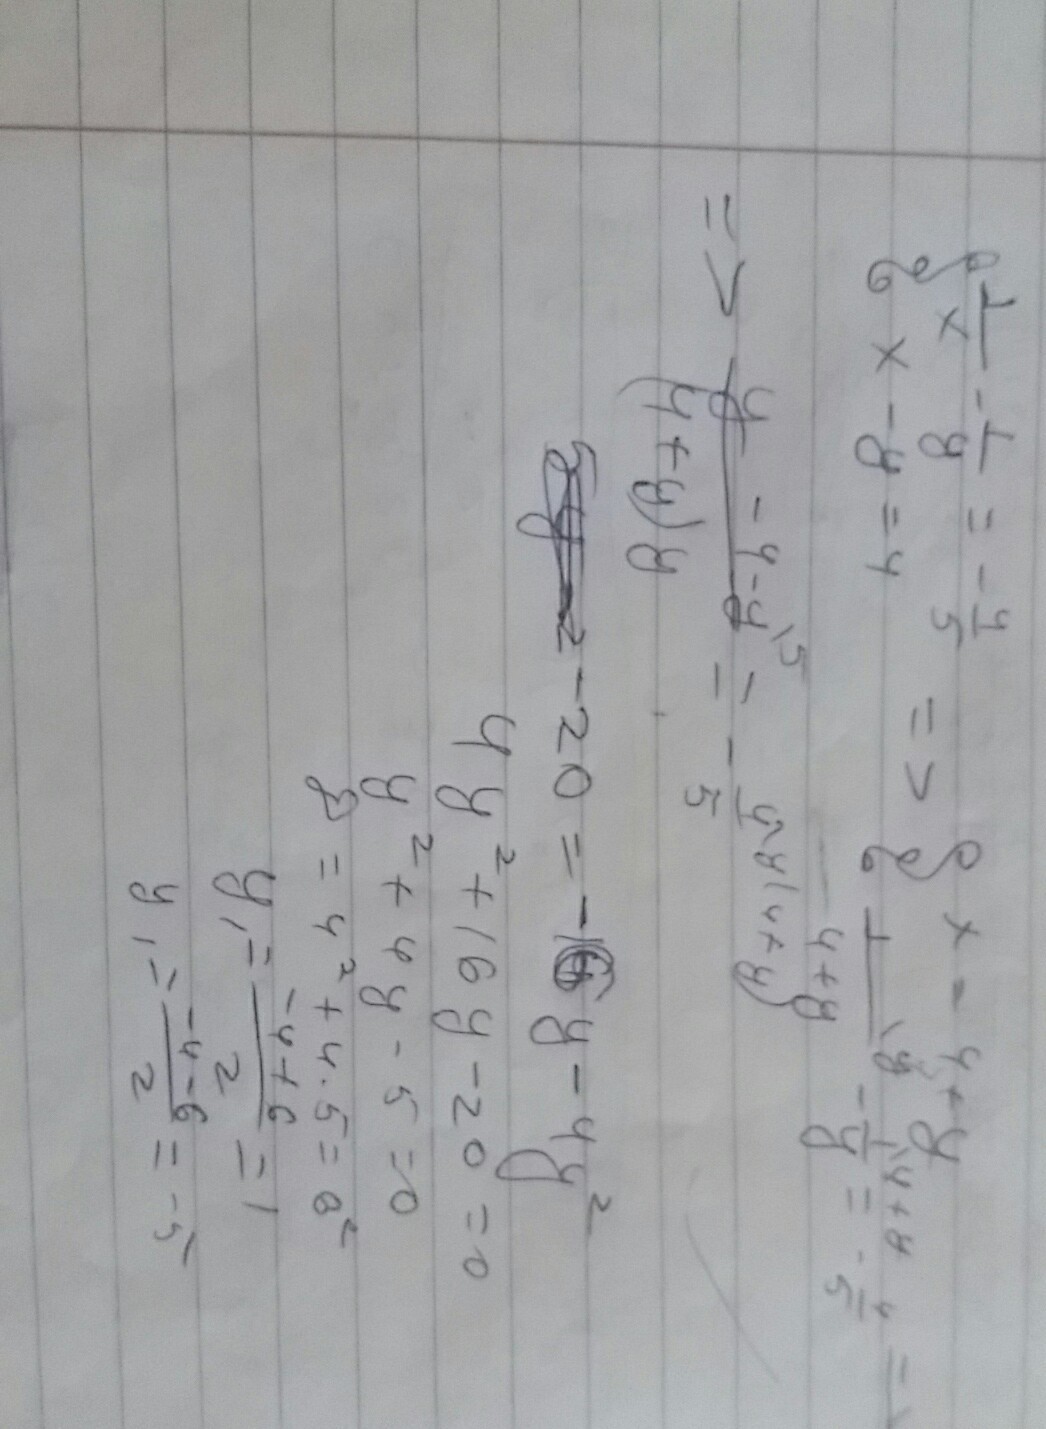 { 1/x - 1/y = - 4/5 => { x = 4+y
{ x - y = 4 { 1/4+y \y - 1/y \4+y = - 4/5 =>
=> y - 4 - y \5 / (4+y)y = - 4 \y(4+y) / 5
-20 = -16y - 4y²
4y² + 16y - 20 = 0
y² + 4y - 5 = 0
D = 4² + 4·5 = 6²
y₁ = -4+6 / 2 = 1
y₁ = -4-6 / 2 = -5